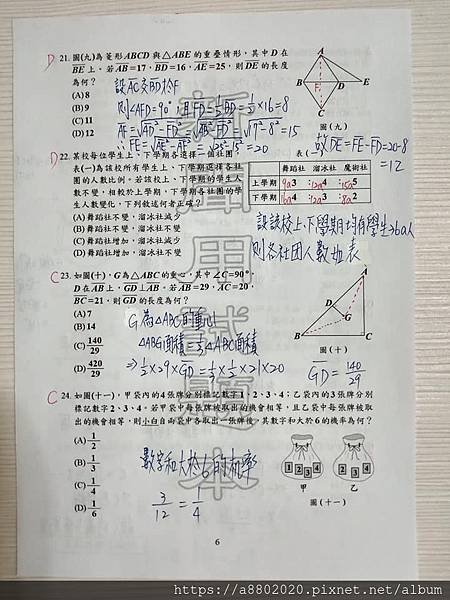 D 21. 圖(九)為菱形ABCD與△ABE的重疊情形，其中D在
BE上。若AB=17，BD=16，AE=25，則DE的長度
為何？
設AC交BD於F
(A) 8
(B) 9
(C) 11
(D) 12
則∠AFD=90°，且FD=½BD=½×16=8
AF=√AD²-FD²=√AB²-FD²=√17²-8²=15
∴FE=√AE²-AF²=√25²-15²=20
故DE=FE-FD=20-8
=12
A
B F D E
C
圖(九)
D 22. 某校每位學生上、下學期各選擇一個社團，
表(一)為該校所有學生上、下學期選擇各社
團的人數比例。若該校上、下學期的學生人
數不變，相較於上學期，下學期各社團的學
生人數變化，下列敘述何者正確？
(A) 舞蹈社不變，溜冰社減少
(B) 舞蹈社不變，溜冰社不變
(C) 舞蹈社增加，溜冰社減少
(D) 舞蹈社增加，溜冰社不變
表(一)
舞蹈社 溜冰社 魔術社
上學期 9a 3 12a 4 15a 5
下學期 16a 4 12a 3 8a 2
設該校上、下學期均有學生36a人
則各社团人數如表
C 23. 如圖(十)，G為△ABC的重心，其中∠C=90°，
D在AB上，GD⊥AB。若AB=29，AC=20，
BC=21，則GD的長度為何？
(A) 7
(B) 14
(C) 140/29
(D) 420/29
G為△ABC的重心
△ABG面積=⅓△ABC面積
⇒½×29×GD=⅓×½×21×20
GD=140/29
D
G
B C
圖(十)
C 24. 如圖(十一)，甲袋內的4張牌分別標記數字1、2、3、4；乙袋內的3張牌分別
標記數字2、3、4。若甲袋中每張牌被取出的機會相等，且乙袋中每張牌被取
出的機會相等，則小白自兩袋中各取出一張牌後，其數字和大於6的機率為何？
(A) 1/2
(B) 1/3
(C) 1/4
(D) 1/6
數字和大於6的机率
3/12=1/4
1 2 3 4
2 3 4
甲 乙
圖(十一)
新聞用試題本
6
https://a8802020.pixnet.net/album